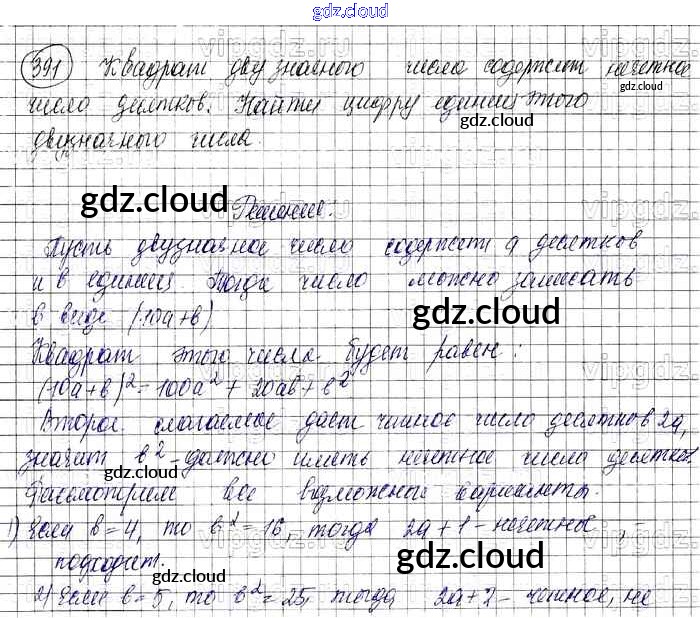 gdz.cloud
391 Квадрат двузначного числа содержит нечетное
число десятков. Найти цифру единиц этого
gdz.cloud
gdz.cloud
двузначного числа.
gdz.cloud
Решение.
Пусть двузначное число содержит a десятков
и в единиц. Тогда число можно записать
в виде (10a+в)
gdz.cloud
Квадрат этого числа будет равен:
(10a+в)²=100a²+20aв+в²
gdz.cloud
Второе слагаемое даст чинное число десятков 2a,
значит в² - должно иметь нечетное число десятков.
gdz.cloud
Рассмотрим все возможные варианты.
gdz.cloud
1) Если в=4, то в²=16, тогда 2a+1 - нечетное, -
подходит.
gdz.cloud
gdz.cloud
2) Если в=5, то в²=25, тогда 2a+2 - чинное, не